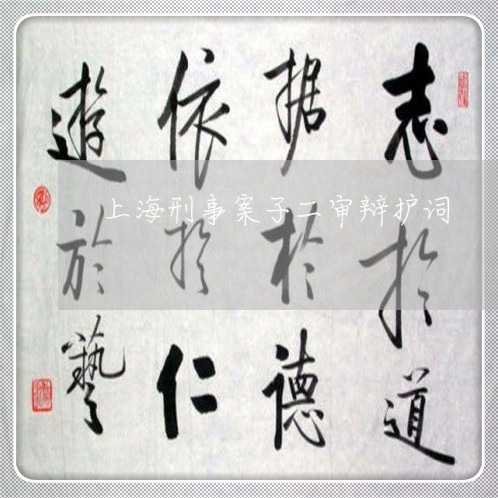 志於道
据於德
依於仁
遊於藝
上海刑事案子二审辩护词